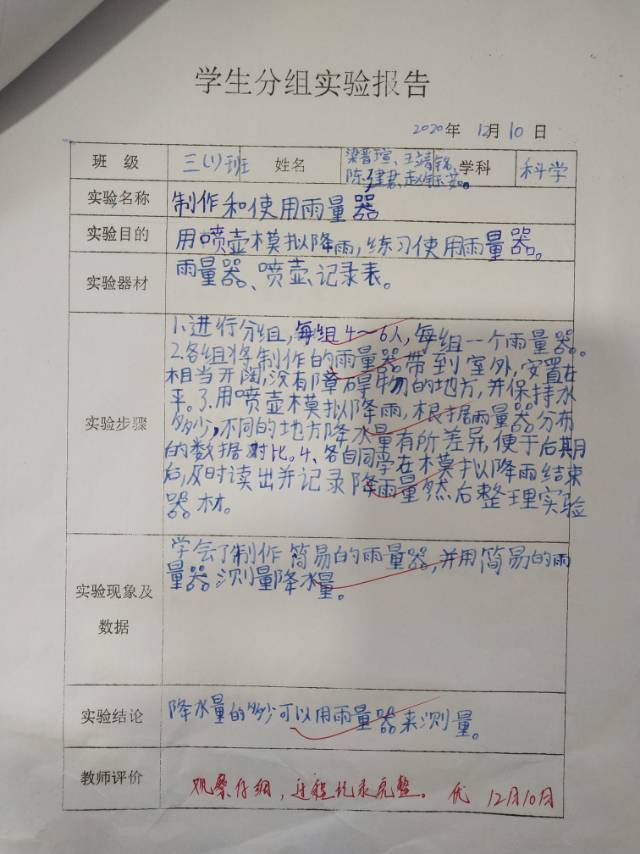 学生分组实验报告
2020年 12月10日
班级 三(1)班 姓名 梁晋瑄、王靖铭、 学科 科学
陈建君、赵钰安。
实验名称 制作和使用雨量器
实验目的 用喷壶模拟降雨,练习使用雨量器。
实验器材 雨量器、喷壶、记录表。
实验步骤
1.进行分组,每组4~6人,每组一个雨量器。
2.各组将制作的雨量器带到室外,安置在
相当开阔,没有障碍物的地方,并保持水
平。3.用喷壶模拟降雨,根据雨量器分布
多少,不同的地方降水量有所差异,便于后期
的数据对比。4、各自同学在模拟降雨结束
后,及时读出并记录降雨量然后整理实验
器材。
实验现象及
数据
学会了制作简易的雨量器,并用简易的雨
量器测量降水量。
实验结论 降水量的多少可以用雨量器来测量。
教师评价 观察仔细,过程记录完整。 优 12月10日